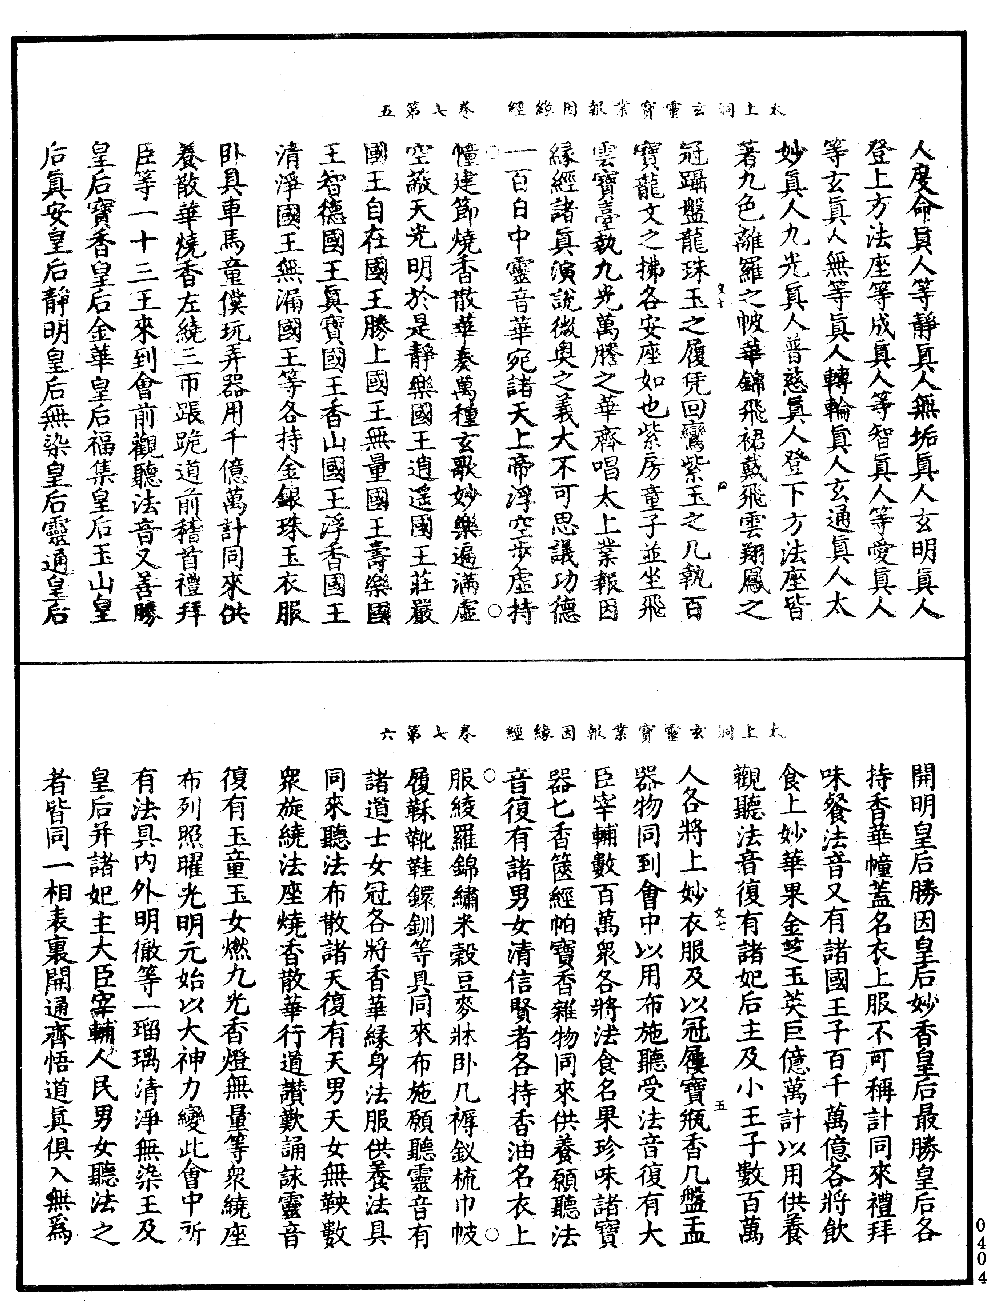 太上洞玄靈寶業報因緣經　卷七第五
人度命真人等靜真人無垢真人玄明真人
登上方法座等成真人等智真人等愛真人
等玄真人無等真人轉輪真人玄通真人太
妙真人九光真人普慈真人登下方法座皆
著九色離羅之帔華錦飛裙戴飛雲翔鳳之
冠躡盤龍珠玉之履凭回鸞紫玉之几執百
寶龍文之拂各安座如也紫房童子並坐飛
雲寶臺執九光萬勝之華齊唱太上業報因
緣經諸真演說微奧之義大不可思議功德
一百白中靈音華宛諸天上帝浮空步虛持
幢建節燒香散華奏萬種玄歌妙樂遍滿虛
空蔽天光明於是靜樂國王逍遥國王莊嚴
國王自在國王勝上國王無量國王壽樂國
王智德國王真寶國王香山國王浮香國王
清淨國王無漏國王等各持金銀珠玉衣服
卧具車馬童僕玩弄器用千億萬計同來供
養散華燒香左繞三帀踞跪道前稽首禮拜
臣等一十三王來到會前觀聽法音又善勝
皇后寶香皇后金華皇后福集皇后玉山皇
后真安皇后靜明皇后無染皇后靈通皇后
太上洞玄靈寶業報因緣經　卷七第六
開明皇后勝因皇后妙香皇后最勝皇后各
持香華幢蓋名衣上服不可稱計同來禮拜
味餐法音又有諸國王子百千萬億各將飲
食上妙華果金芝玉英巨億萬計以用供養
觀聽法音復有諸妃后主及小王子數百萬
人各將上妙衣服及以冠屨寶瓶香几盤盂
器物同到會中以用布施聽受法音復有大
臣宰輔數百萬衆各將法食名果珍味諸寶
器七香篋經帕寶香雜物同來供養願聽法
音復有諸男女清信賢者各持香油名衣上
服綾羅錦繡米穀豆麥牀卧几褥釵梳巾帔
履靺靴鞋鐶釧等具同來布施願聽靈音有
諸道士女冠各將香華緣身法服供養法具
同來聽法布散諸天復有天男天女無鞅數
衆旋繞法座燒香散華行道讚歎誦詠靈音
復有玉童玉女燃九光香燈無量等衆繞座
布列照曜光明元始以大神力變此會中所
有法具内外明徹等一瑠璃清淨無染王及
皇后并諸妃主大臣宰輔人民男女聽法之
者皆同一相表裏開通齊悟道真俱入無爲
0404